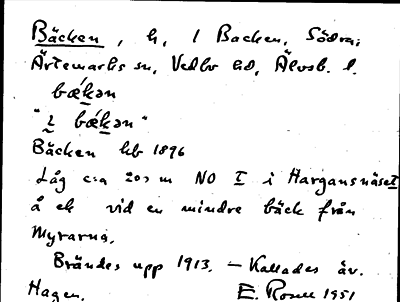 Bäcken, h, l Backen, Södra;
Ärtemarks sn, Vedbo hd, Älvsb. l.
bǽkən
"i bǽkən"
Bäcken hb 1896
Låg c:a 200 m NO I i Hargansnäset
å ek vid en mindre bäck från
Myrarna.
Brändes upp 1913. — Kallades äv.
Hagen. E. Rosell 1951